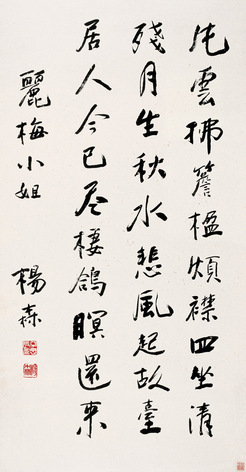 雲拂簷楹煩襟四坐清
殘月生秋水悲風起故臺
居人今已尽棲鴿暝還来
麗梅小姐 楊森